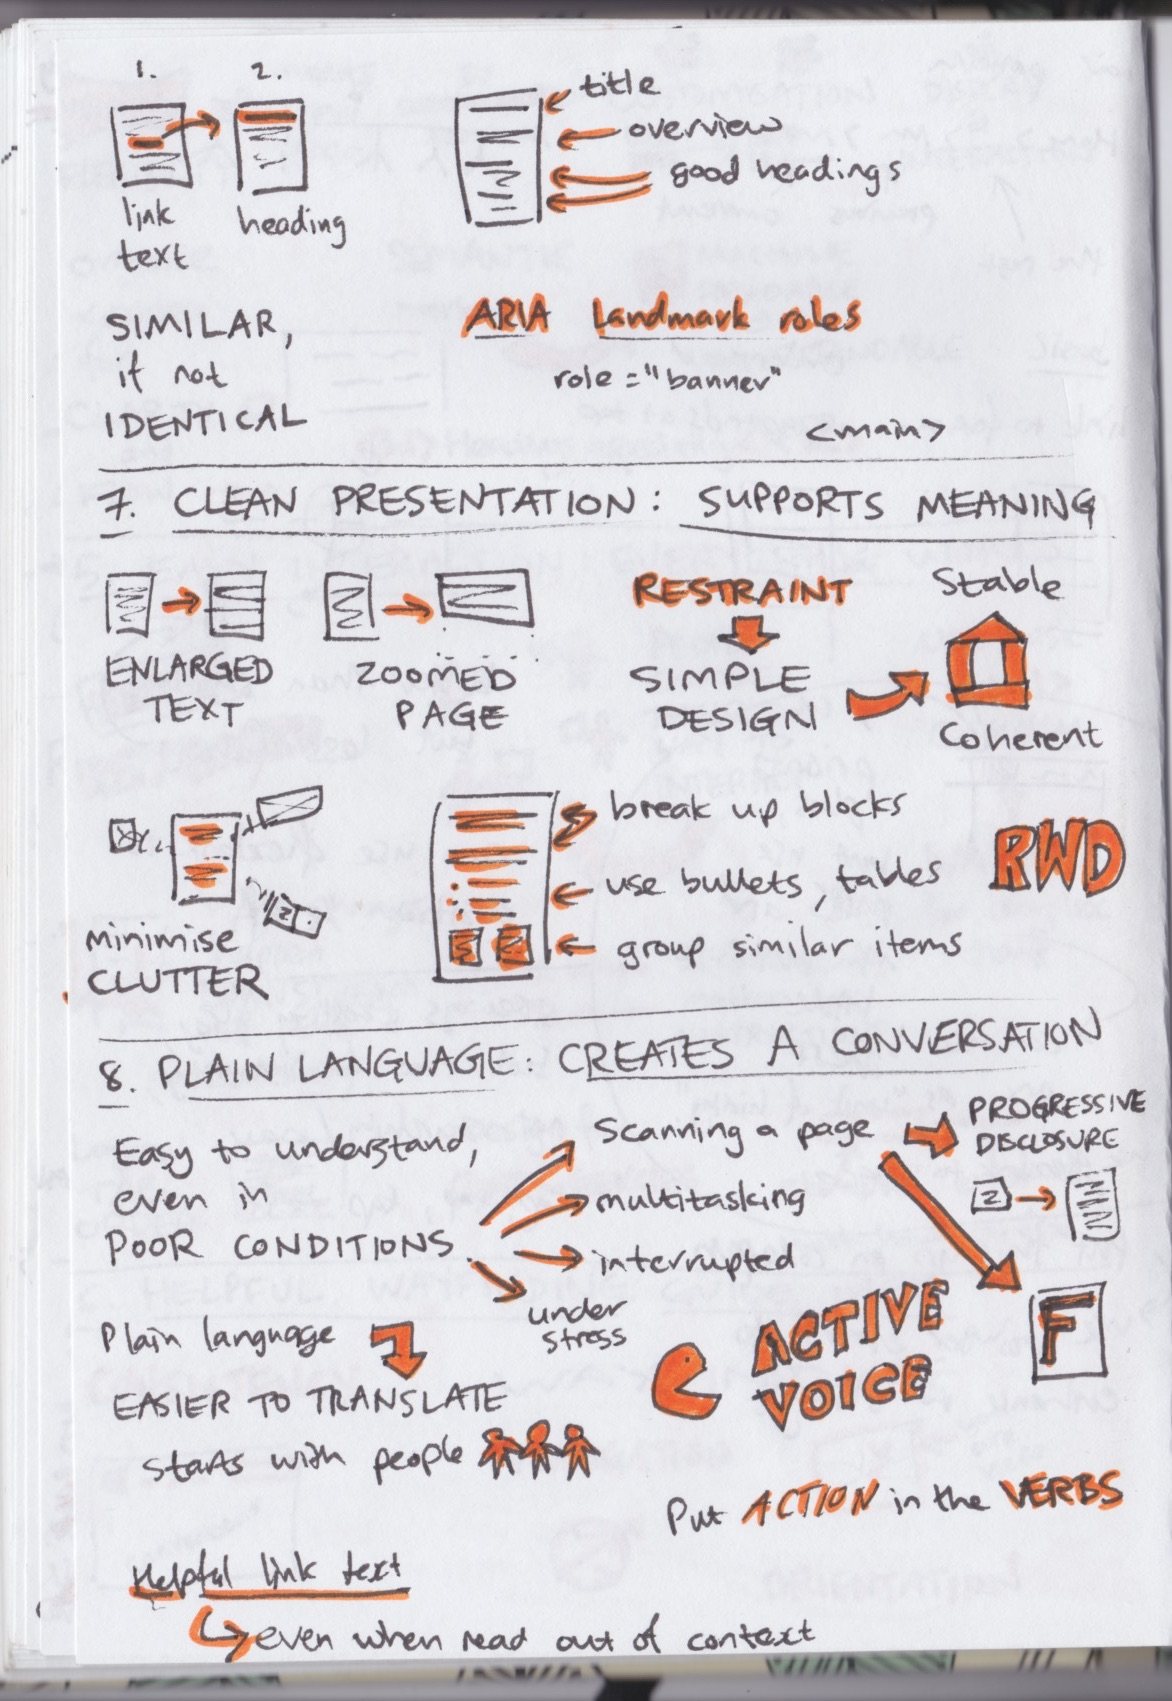 1.
2.
link
text
heading
title
overview
good headings
SIMILAR,
if not
IDENTICAL
ARIA Landmark roles
role="banner"
<main>
7. CLEAN PRESENTATION: SUPPORTS MEANING
ENLARGED
TEXT
ZOOMED
PAGE
RESTRAINT
SIMPLE
DESIGN
Stable
Coherent
minimise
CLUTTER
break up blocks
use bullets, tables
group similar items
RWD
8. PLAIN LANGUAGE: CREATES A CONVERSATION
Easy to understand,
even in
POOR CONDITIONS.
Scanning a page
multitasking
interrupted
under
stress
PROGRESSIVE
DISCLOSURE
F
Plain language
EASIER TO TRANSLATE
starts with people
ACTIVE
VOICE
Put ACTION in the VERBS
Helpful link text
even when read out of context